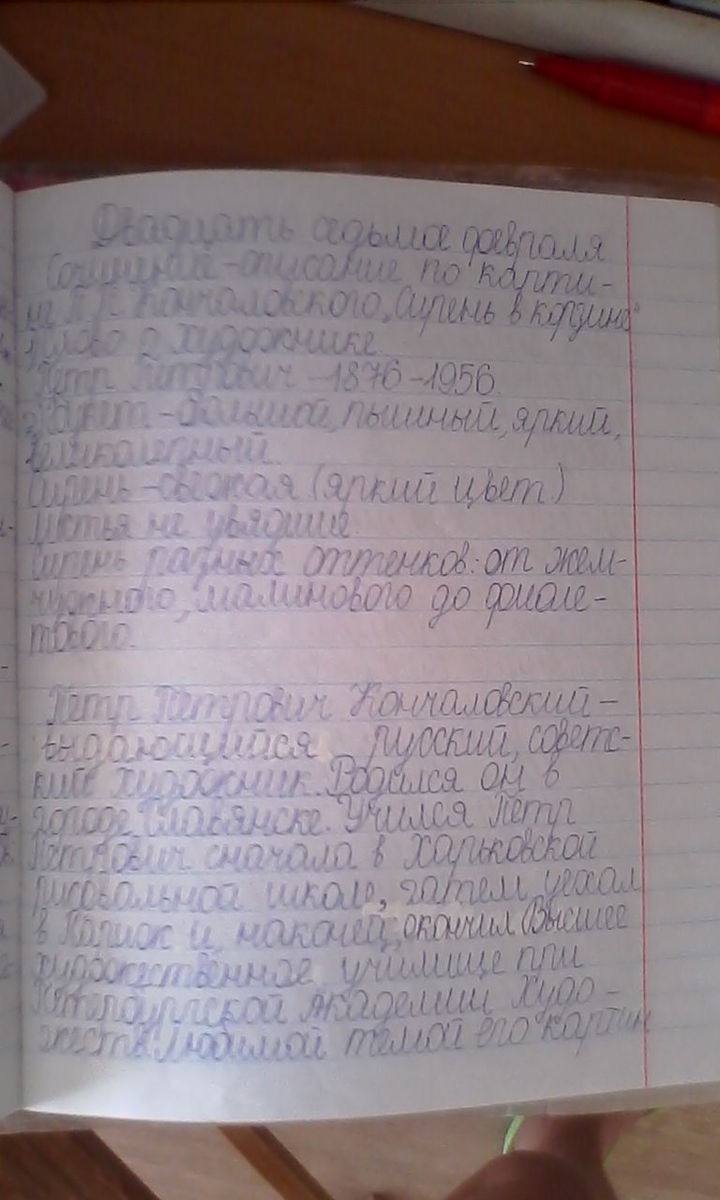 Двадцать седьмое февраля
Сочинение-описание по карти-
не П.П. Кончаловского „Сирень в корзине"
Слово о художнике.
Пётр Петрович -1876-1956.
Букет-большой, пышный, яркий,
великолепный.
Сирень -свежая (яркий цвет)
листья не увядшие.
Сирень разных оттенков: от жем-
чужного, малинового до фиоле-
тового.
Пётр Петрович Кончаловский-
выдающийся русский, советс-
кий художник. Родился он в
городе Славянске. Учился Пётр
Петрович сначала в Харьковской
рисовальной школе, затем уехал
в Париж и, наконец, окончил Высшее
художественное училище при
Петербургской Академии Худо-
жеств. Любимой темой его картин